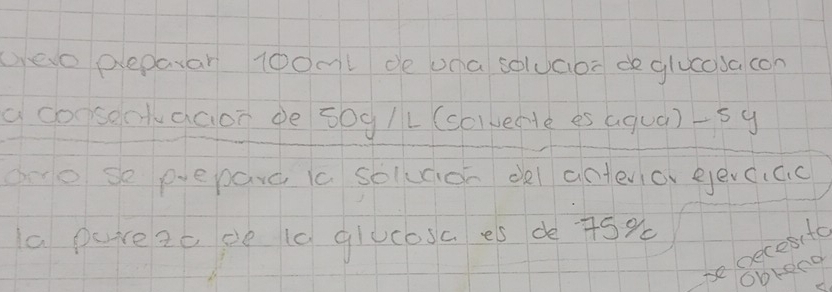 preparar 100ml de una solución de glucosa con
a concentración de 50g/L (solvente es agua) - 5 g
se prepara la solución del anterior ejercicio
la pureza de la glucosa es de 75%
se necesita